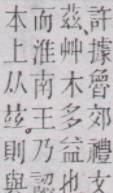 許據魯郊禮文
茲、艸木多益也
而淮南王乃
本上从玆。則與